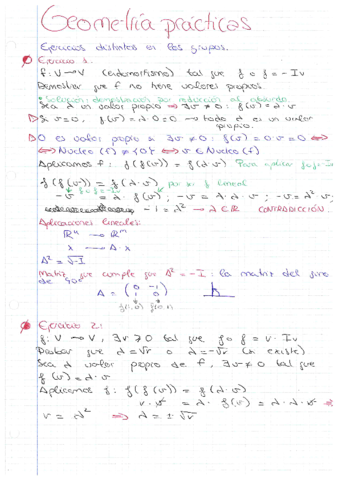 Geometría prácticas
Ejercicios distintos en los grupos.
Ejercicio 1:
f: V → V (endomorfismo) tal que f o f = - Iv
Demostrar que f no tiene valores propios.
* Solución: demostración por reducción al absurdo.
Sea λ un valor propio → ∃ v ≠ 0 : f(v) = λ · v
Si v = 0, f(v) = λ · 0 = 0 → todo λ es un valor
propio.
0 es valor propio = ∃ v ≠ 0 : f(v) = 0 · v = 0 ⟺
⟺ Nucleo (f) ≠ {0} ⟺ v ∈ Nucleo (f)
Aplicamos f : f(f(v)) = f(λ · v) Para aplicar f o f = - Iv
f(f(v)) = f(λ · v) por ser f lineal
f o f = - Iv
- v = λ · f(v) ; - v = λ · λ · v ; - v = λ² · v ;
- 1 = λ² → λ ∉ ℝ CONTRADICCIÓN.
Aplicaciones lineales:
ℝⁿ → ℝᵐ
x → A · x
A² = √-I
Matriz que cumple que A² = - I : la matriz del giro
de 90º
A = ( 0 -1
1 0 )
f(1,0) f(0,1)
Ejercicio 2:
f: V → V, ∃ r > 0 tal que f o f = r · Iv
Probar que λ = √r o λ = -√r (si existe)
Sea λ valor propio de f, ∃ v ≠ 0 tal que
f(v) = λ · v
Aplicamos f : f(f(v)) = f(λ · v)
r · v = λ · f(v) = λ · λ · v ⇒
r = λ² ⇒ λ = ± √r